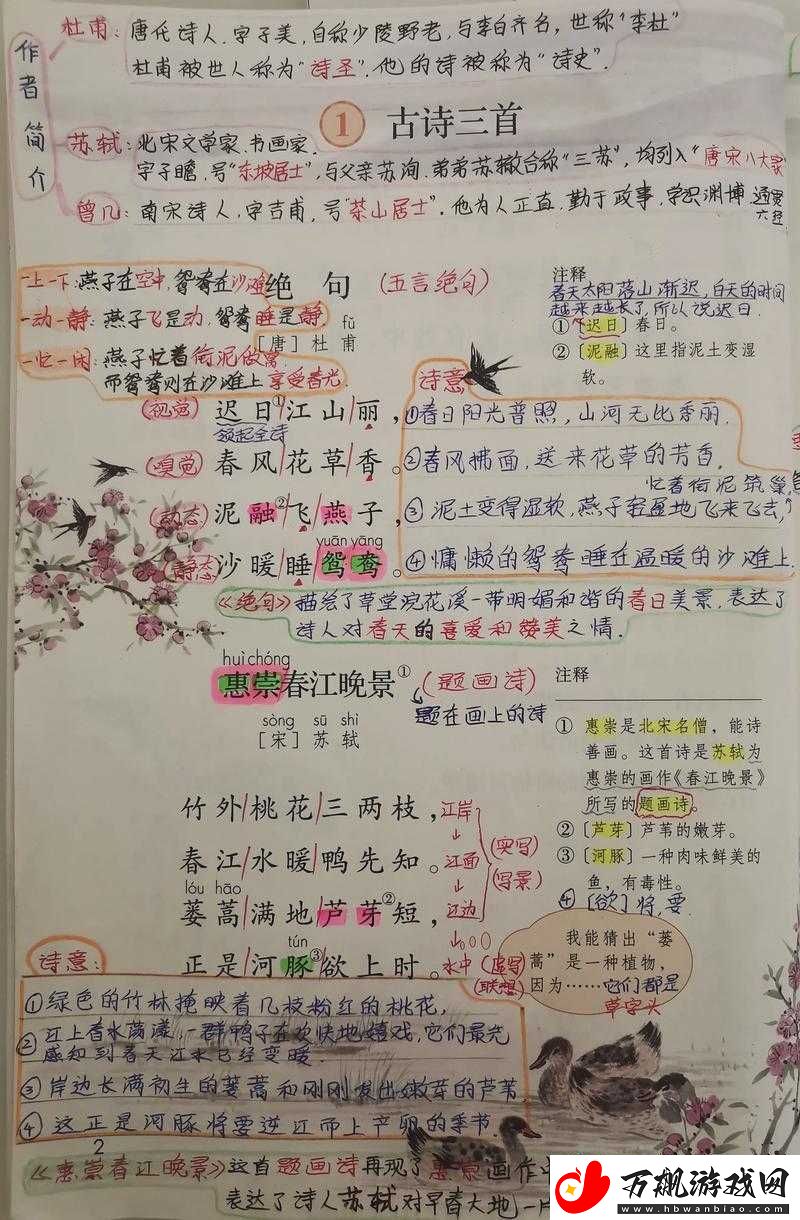 作者简介
杜甫：唐代诗人，字子美，自称少陵野老，与李白齐名，世称“李杜”
杜甫被世人称为“诗圣”，他的诗被称为“诗史”．
1 古诗三首
苏轼：北宋文学家、书画家．
字子瞻，号“东坡居士”，与父亲苏洵、弟弟苏辙合称“三苏”，均列入“唐宋八大家”
曾几：南宋诗人，字吉甫，号“茶山居士”．他为人正直，勤于政事，学识渊博，通贯六经
一上一下：燕子在空中，鸳鸯在沙滩
一动一静：燕子飞是动，鸳鸯睡是静
一忙一闲：燕子忙着衔泥做窝
而鸳鸯则在沙滩上享受春光．
绝句（五言绝句）
fǔ
［唐］杜甫
注释
春天太阳落山渐迟，白天的时间
越来越长了，所以说迟日．
①〔迟日〕春日。
②〔泥融〕这里指泥土变湿
软。
诗意
（视觉）迟日①江山丽，①春日阳光普照，山河无比秀丽．
领起全诗
（嗅觉）春风花草香。②春风拂面，送来花草的芳香．
忙着衔泥筑巢
（动态）泥融②飞燕子，③泥土变得湿软，燕子轻盈地飞来飞去，
yuān yāng
（静态）沙暖睡鸳鸯。④慵懒的鸳鸯睡在温暖的沙滩上．
《绝句》描绘了草堂浣花溪一带明媚和谐的春日美景，表达了
诗人对春天的喜爱和赞美之情．
huì chóng
惠崇春江晚景①（题画诗）
题在画上的诗
sòng sū shì
［宋］苏轼
注释
①惠崇是北宋名僧，能诗
善画。这首诗是苏轼为
惠崇的画作《春江晚景》
所写的题画诗。
②〔芦芽〕芦苇的嫩芽。
③〔河豚〕一种肉味鲜美的
鱼，有毒性。
④〔欲〕将，要．
竹外桃花三两枝，江岸
春江水暖鸭先知。江面
（实写）
（写景）
lóu hāo
蒌蒿满地芦芽②短，江边
tún
正是河豚③欲上时。水中（虚写）
（联想）
我能猜出“蒌
蒿”是一种植物，
因为……它们都是
草字头
诗意：
①绿色的竹林掩映着几枝粉红的桃花，
②江上春水荡漾，一群鸭子在欢快地嬉戏，它们最先
感知到春天江水已经变暖．
③岸边长满初生的蒌蒿和刚刚发出嫩芽的芦苇．
④这正是河豚将要逆江而上产卵的季节．
2
《惠崇春江晚景》这首题画诗再现了惠崇画作中
表达了诗人苏轼对早春大地一
万飙游戏网
www.hbwanbiao.com